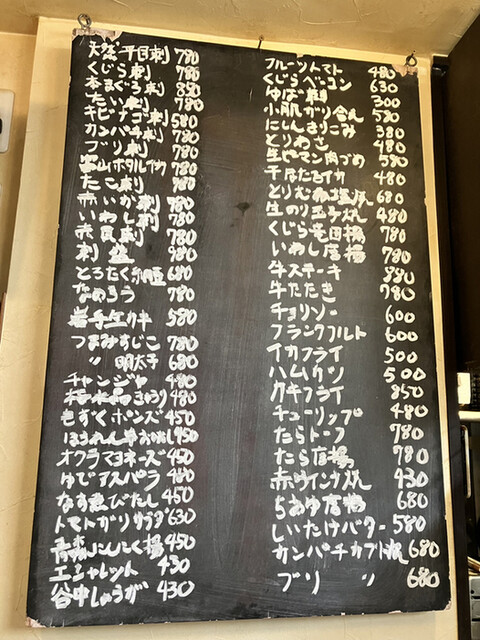 天然平目刺 780
くじら刺 780
本まぐろ刺 850
たい刺 780
キビナゴ刺 580
カンパチ刺 780
ブリ刺 780
富山ホタルイカ 780
たこ刺 780
赤いか刺 780
いわし刺 780
赤貝刺 780
刺盛 980
とろたく納豆 680
なめろう 780
岩手生カキ 580
つまみすじこ 780
〃 明太子 680
チャンジャ 480
梅水晶きゅうり 480
もずくポンズ 450
ほうれん草おひたし 450
オクラマヨネーズ 450
ゆでアスパラ 480
なす煮びたし 450
トマトガリサラダ 630
青森にんにく揚 450
エシャレット 430
谷中しょうが 430
フルーツトマト 480
くじらベーコン 630
ゆば刺 300
小肌ガリ合え 580
にしんきりこみ 380
とりわさ 480
生ピーマン肉づめ 580
干ほたるイカ 480
とりむね塩焼 680
生のり玉子焼 480
くじら竜田揚 780
いわし唐揚 780
牛ステーキ 980
牛たたき 780
チョリソー 600
フランクフルト 600
イカフライ 500
ハムカツ 500
カキフライ 850
チューリップ 480
たらトーフ 780
たら唐揚 780
赤ウインナ焼 430
ちあゆ唐揚 680
しいたけバター 580
カンパチカブト焼 680
ブリ 〃 680